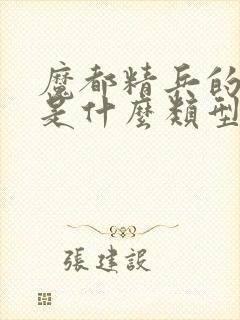 魔都精兵的
是什麼類型
張建設